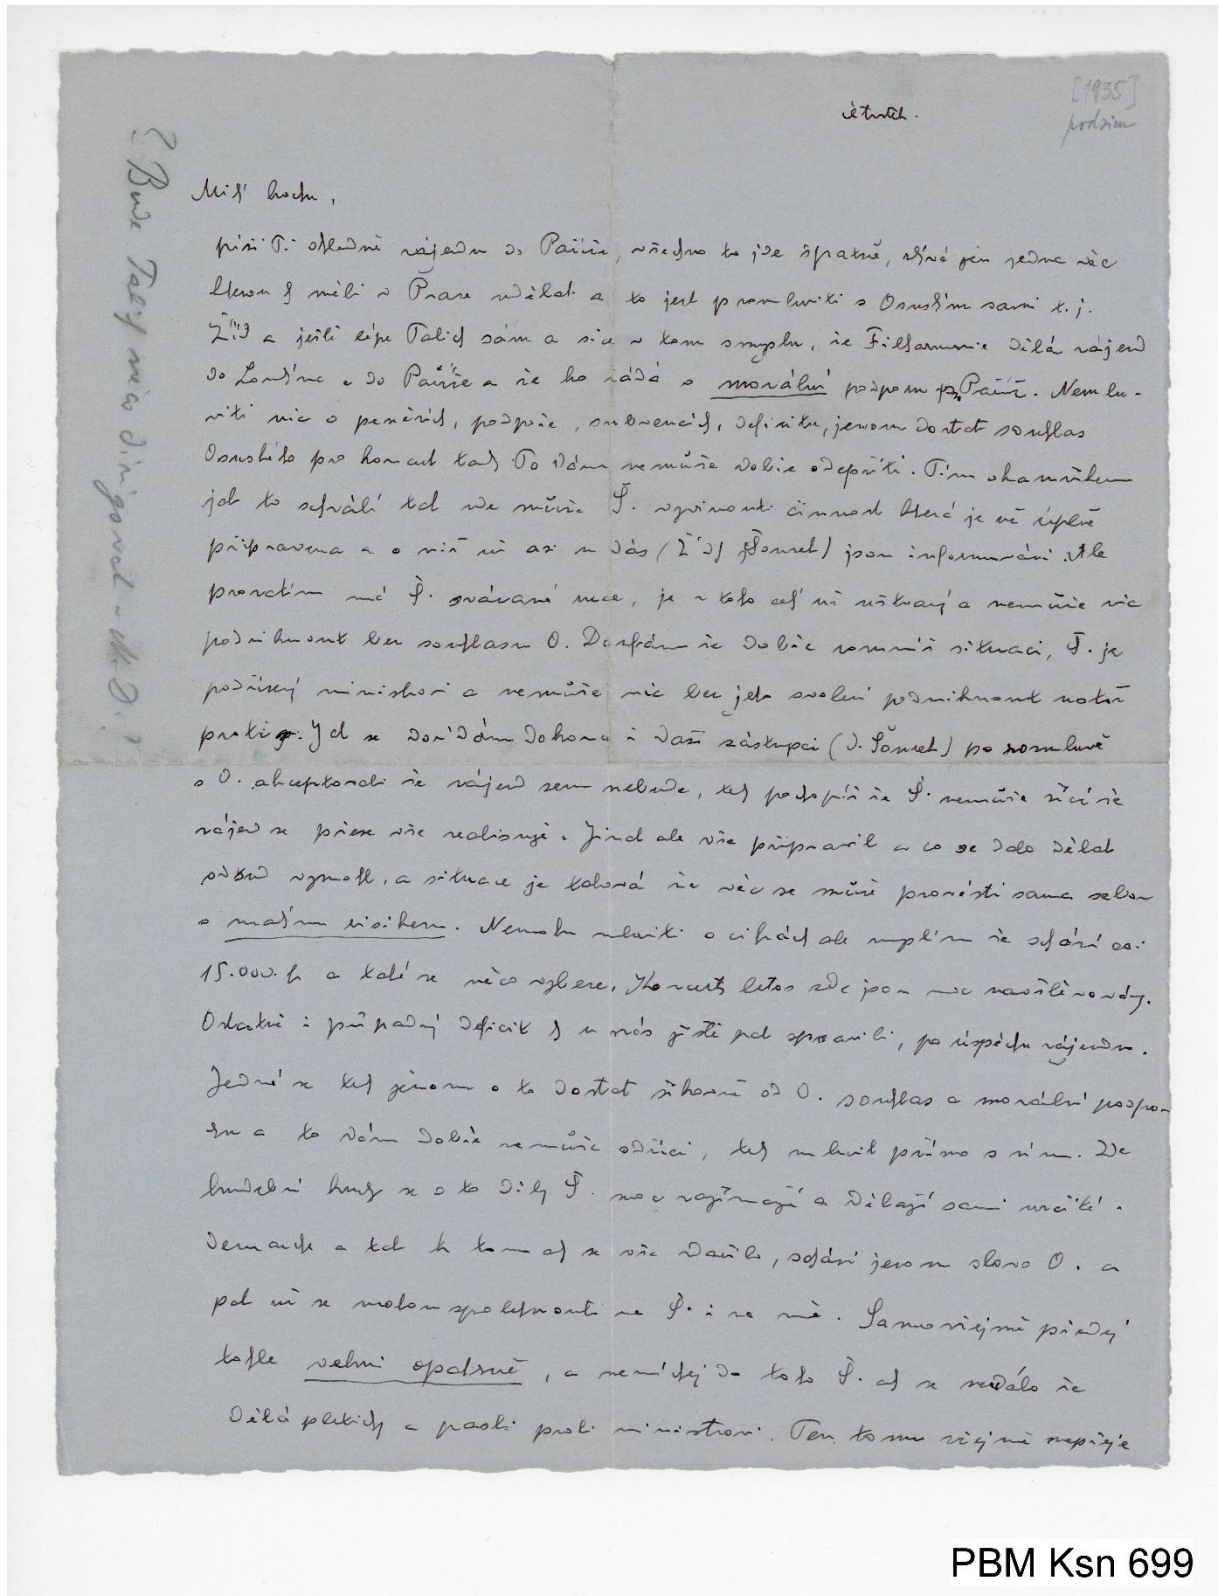 čtvrtek.
[1935]
podzim
Milý hochu,
píši Ti ohledně zájezdu do Paříže, všechno to jde špatně, zbývá jen jedna věc
kterou by měli v Praze udělat a to jest promluviti s Osuským sami t.j.
Žíd a ještě lépe Talich sám a sice v tom smyslu, že Filharmonie dělá zájezd
do Londýna a do Paříže a že ho žádá o morální podporu Paříž. Nemlu-
viti nic o penězích, podpoře, subvencích, deficitu, jenom dostat souhlas
Osuského pro koncert tady. To Vám nemůže dobře odepříti. Tím okamžikem
jak to schválí tak zde může Š. vyvinout činnost která je už úplně
připravena a o níž už asi u Vás (Žíd, Šourek) jsou informováni. Ale
prozatím má Š. svázané ruce, je z toho celý už uštvaný a nemůže nic
podniknout bez souhlasu O. Doufám že dobře rozumíš situaci, Š. je
podřízený ministrovi a nemůže nic bez jeho svolení podniknout natož
proti. Jak se dovídám dokonce i Vaši zástupci (J. Šourek) po rozmluvě
s O. akceptovali že zájezd sem nebude, tedy pochopíš že Š. nemůže říci že
zájezd se přese vše realisuje. Jinak ale vše připravil a co se dalo dělat
odvedl vymohl, a situace je taková že věc se může provésti sama sebou
s malým risikem. Nemohu mluviti o cifrách ale myslím že schází asi
15.000 fr a také se něco vybere. Koncerty letos zde jsou moc navštěvovány.
Ostatně i případný deficit by u nás jistě pak spravili, po úspěchu zájezdu.
Jedná se tedy jenom o to dostat šikovně od O. souhlas a morální podpo-
ru a to Vám dobře nemůže odříci, tedy mluvit přímo s ním. Zde
hudební kruhy se o to díky Š. moc zajímají a dělají sami určité
demarche a tak k tomu aby se vše dařilo, schází jenom slovo O. a
pak už se mohou spolehnouti na Š. i na mě. Samozřejmě předej
tohle velmi opatrně, a nemíchej do toho Š. aby se nezdálo že
dělá pletichy a pasti proti ministrovi. Ten tomu zřejmě nepřeje
? Bude Talich něco dirigovat v
PBM Ksn 699